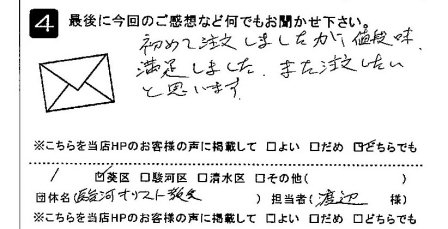 4 最後に今回のご感想など何でもお聞かせ下さい。
初めて注文しましたが、値段、味、
満足しました。また注文したい
と思います。
※こちらを当店HPのお客様の声に掲載して □よい □だめ ☑どちらでも
☑葵区 □駿河区 □清水区 □その他( )
団体名(駿河キリスト教会 ) 担当者(渡辺 様)
※こちらを当店HPのお客様の声に掲載して □よい □だめ □どちらでも